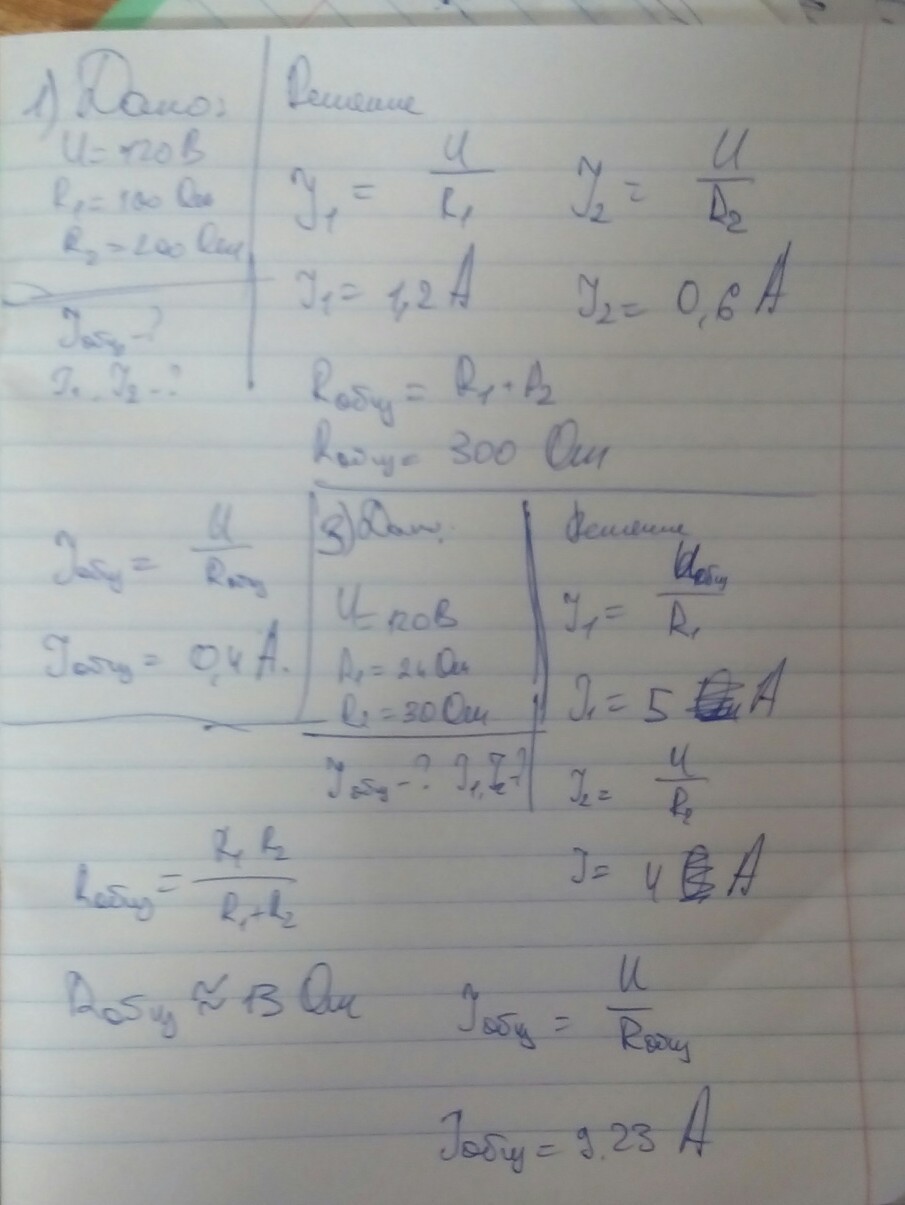 1) Дано:
U = 120 В
R₁ = 100 Ом
R₂ = 200 Ом
Iобщ - ?
I₁, I₂ - ?
Решение
I₁ = U/R₁ I₂ = U/R₂
I₁ = 1,2 А I₂ = 0,6 А
Rобщ = R₁ + R₂
Rобщ = 300 Ом
Iобщ = U/Rобщ
Iобщ = 0,4 А.
3) Дано:
U = 120 В
R₁ = 24 Ом
R₂ = 30 Ом
Iобщ - ? I₁, I₂ - ?
Решение
I₁ = Uобщ/R₁
I₁ = 5 А
I₂ = U/R₂
I = 4 А
Rобщ = R₁ R₂/R₁ + R₂
Rобщ ≈ 13 Ом
Iобщ = U/Rобщ
Iобщ = 9.23 А